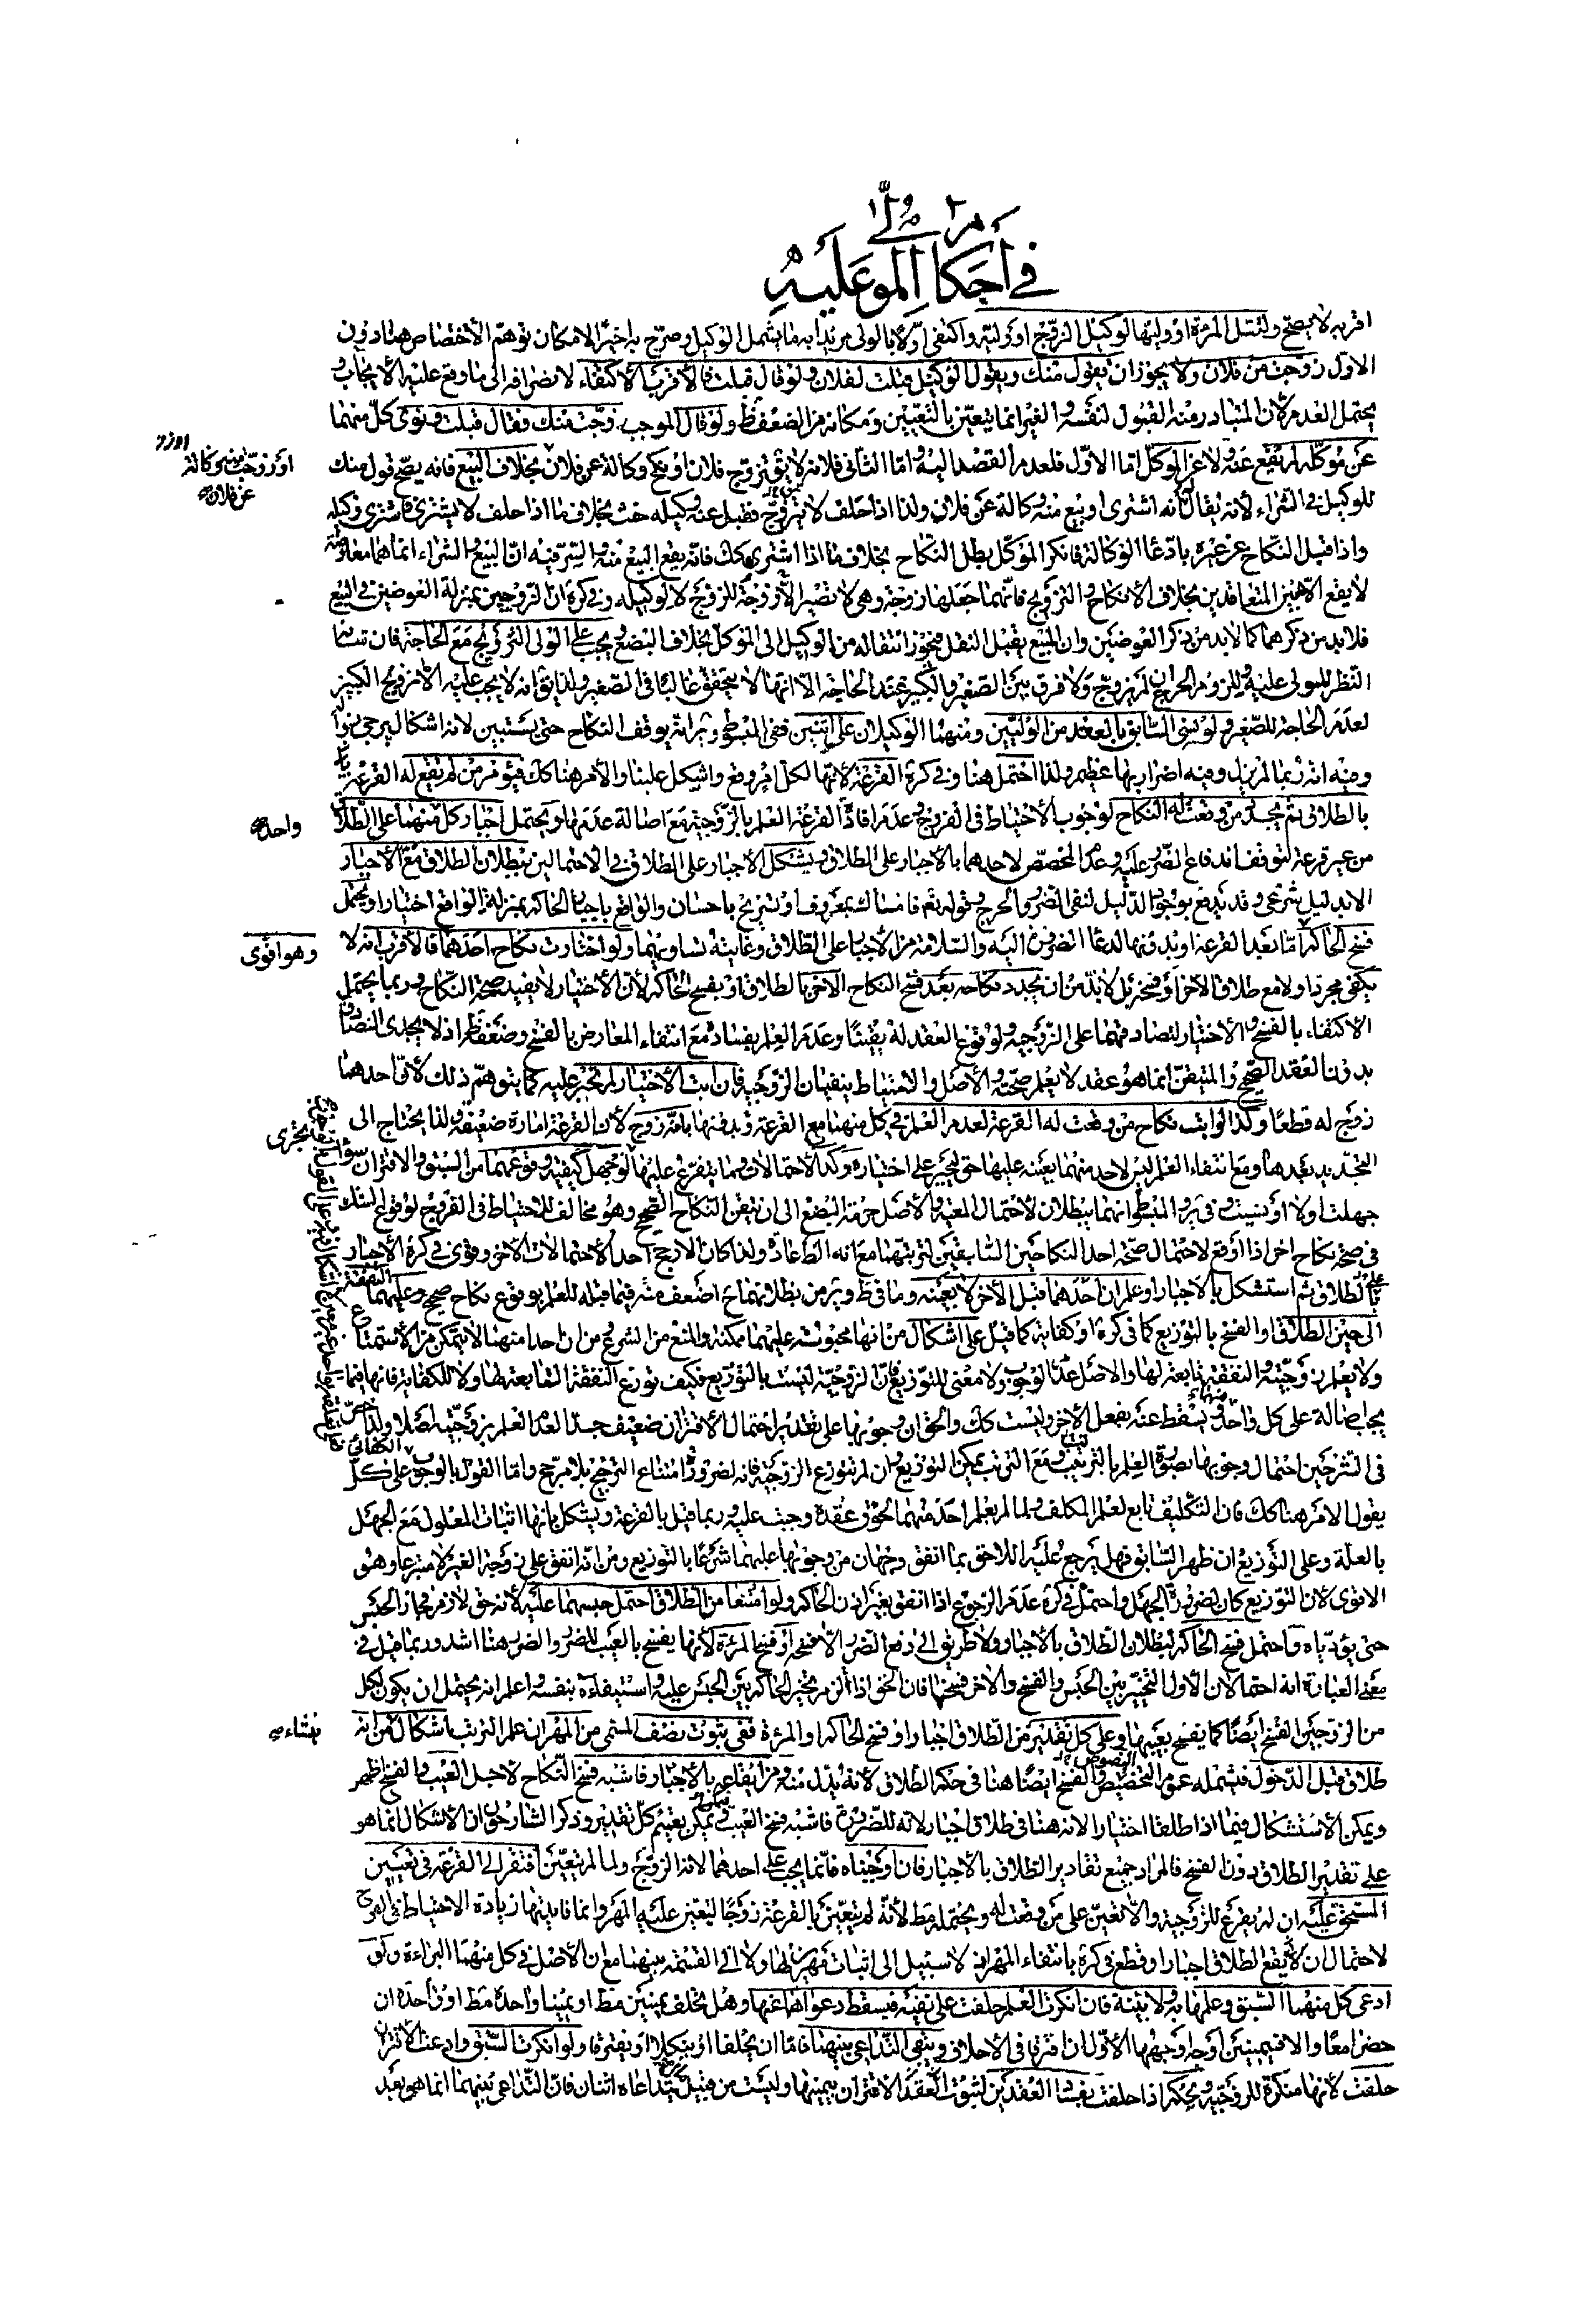 في أحكام المولى عليه
اقربه لا يصح ولتقل المرأة او وليها لوكيل الزوج او وليه واكتفى اولا بالولى مريدا به ما يشمل الوكيل وصرح به اخيرا لامكان توهم الأختصاص هنا دون
الاول زوجت من فلان ولا يجوز ان يقول منك ويقول الوكيل قبلت لفلان ولو قال قبلت فالأقرب الأكتفاء لانضرافه الى ما وقع عليه الأيجاب و
يحتمل العدم لأن المتبادر منه القبول لنفسه والغير انما يتعين بالتعيين ومكانه من الضعف ظ ولو قال الموجب زوجت منك فقال قبلت ونوى كل منهما
عن موكله لم يقع عنه ولا عن الموكل اما الاول فلعدم القصد اليه واما الثانى فلانه لا يق تزوج فلان او نكح وكالة عن فلان بخلاف البيع فانه يصح قول منك
او زوجت بنتى وكالة
عن فلان صح
للوكيل في الشراء لأنه يقال انه اشترى او بيع منه وكالة عن فلان ولذا اذا حلف لا يتزوج فقبل عنه وكيله حنث بخلاف ما اذا حلف لا يشترى فاشترى وكيله
واذا قبل النكاح عن غيره بادعاء الوكالة فانكر الموكل بطل النكاح بخلاف ما اذا اشترى كك فانه يقع البيع منه والسر فيه ان البيع والشراء انما هما معاوضة
لا يقع الا بين المتعاقدين بخلاف الأنكاح والتزويج فانهما جعلها زوجة وهى لا تصير الا زوجة للزوج لا لوكيله وفي كره ان الزوجين بمنزلة العوضين في البيع
فلا بد من ذكرهما كما لا بد من ذكر العوضين وان البيع يقبل النقل فيجوز انتقاله من الوكيل الى الموكل بخلاف البضع ويجب على الولى التزويج مع الحاجة فان
النظر للمولى عليه وللزوم الحرج ان لم يزوج ولا فرق بين الصغير والكبير عند الحاجة الا انها لا تتحقق غالبا في الصغير ولذا يق انه لا يجب عليه الا تزويج الكبير
لعدم الحاجة للصغير ولو نسى السابق بالعقد من الوليين ومنهما الوكيلان على اثنين ففى المبسوط وير انه يوقف النكاح حتى يستبين لانه اشكال يرجى زواله
وفيه انه ربما لم يزل وفيه اضرار بها عظيم ولذا احتمل هنا وفي كره القرعة لأنها لكل امر وقع واشكل علينا والأمر هنا كك فيؤمر من لم يقع له القرعة
بالطلاق ثم يجدد من وقعت له النكاح لوجوب الأحتياط في الفروج وعدم افادة القرعة العلم بالزوجية مع اصالة عدمها ويحتمل اجبار كل منهما على الطلاق
واحد صح
من غير قرعة لتوقف اندفاع الضرر عليه وعدم المخصص لاحدهما بالأجبار على الطلاق ويشكل الأجبار على الطلاق في الاحتمالين ببطلان الطلاق مع الأجبار
الا بدليل شرعى وقد يدفع بوجود الدليل لنفى الضرر والحرج وقوله تع فامساك بمعروف او تسريح باحسان والواقع باجبار الحاكم بمنزلة الواقع اختيارا ويحتمل
فسخ الحاكم اما بعد القرعة او بدونها لدعاء الضرورة اليه والسلامة من الأجبار على الطلاق وغايته تساويهما ولو اختارت نكاح احدهما فالأقرب انه لا
وهو اقوى
يكفى مجردا ولا مع طلاق الآخر او فسخه بل لا بد من ان يجدد نكاحه بعد فسخ النكاح الآخر بالطلاق او بفسخ الحاكم لأن الأختيار لا يفيد صحة النكاح وربما يحتمل
الاكتفاء بالفسخ والأختيار لتصادقهما على الزوجية ولوقوع العقد له يقينا وعدم العلم بفساده مع انتفاء المعارض بالفسخ وضعفه ظ اذ لا يجدى التصادق
بدون العقد الصحيح والمتيقن انما هو عقد لا يعلم صحته والأصل والاحتياط ينفيان الزوجية فان ابت الأختيار لم تجبر عليه كما يتوهم ذلك لأن احدهما
زوج له قطعا وكذا لو ابت نكاح من وقعت له القرعة لعدم العلم في كل منهما مع القرعة وبدونها بانه زوج لأن القرعة امارة ضعيفة ولذا يحتاج الى
التجديد بعدها ومع انتفاء العلم ليس لاحد منهما بعينه عليها حق لتجبر على اختياره وكذا الأحتمالات وما يتفرع عليها لو جهل كيفية وقوعهما من السبق والاقتران سواء
جهلت اولا او نسيت وفي ير والمبسوط انهما يبطلان لأحتمال المعية والأصل حرمة البضع الى ان يتيقن النكاح الصحيح وهو مخالف للاحتياط في الفروج لوقوع الشك
في صحة نكاح اخر اذا اوقع لاحتمال صحة احد النكاحين السابقين لترتبهما مع انه الظ عادة ولذا كان الارجح احد الأحتمالات الأخر وقوى في كره الأجبار
على الطلاق ثم استشكل بالأجبار او علم ان احدهما قبل الأخر لا بعينه وما في ط وير من بطلانهما ح اضعف منه فيما قبله للعلم بوقوع نكاح صحيح وعليهما النفقة
الى حين الطلاق او الفسخ بالتوزيع كما في كره او كفاية كما قيل على اشكال من انها محبوسة عليهما ممكنة والمنع من الشرع من ان احدا منهما لا يتمكن من الأستمتاع
ولا يعلم زوجيته والنفقة تابعة لها والاصل عدم الوجوب ولا معنى للتوزيع فان الزوجية ليست بالتوزيع فكيف توزع النفقة التابعة لها ولا للكفاية فانها فيما
يجب اصالة على كل واحد ويسقط عنه بفعل الأخر وليست كك والحق ان وجوبها على تقدير احتمال الأقتران ضعيف جدا لعدم العلم بزوجيته اصلا ولذا خص
في الشرحين احتمال وجوبها بصورة العلم بالترتيب ومع الترتيب يمكن التوزيع وان لم تتوزع الزوجية فانه لضرورة امتناع الترجيح بلا مرجح واما القول بالوجوب على كل
يقول الامر هنا كك فان التكليف تابع لعلم المكلف ولما لم يعلم احد منهما لحوق عقده وجبت عليه وربما قيل بالقرعة ويشكل بانها اثبات المعلول مع الجهل
بالعلة وعلى التوزيع ان ظهر السابق فهل يرجع عليه اللاحق بما انفق وجهان من وجوبها عليهما شرعا بالتوزيع ومن انه انفق على زوجة الغير لا متبرعا وهو
الاقوى لأن التوزيع كان لضرورة الجهل واحتمل في كره عدم الرجوع اذا انفق بغير اذن الحاكم ولو امتنعا من الطلاق احتمل حبسهما عليه لأنه حق لازم فجاز الحبس
حتى يؤدياه واحتمل فسخ الحاكم لبطلان الطلاق بالأجبار ولا طريق الى دفع الضرر الا فسخه او فسخ المرأة لأنها يفسخ بالعيب للضرر والضرر هنا اشد وربما قيل في
معنى العبارة انه احتمالان الأول التخيير بين الحبس والفسخ والأخر فسخها فان الحق اذا لزم تخير الحاكم بين الحبس عليه واستيفاءه بنفسه واعلم انه يحتمل ان يكون لكل
من الزوجين الفسخ ايضا كما يفسخ بعيبها وعلى كل تقدير من الطلاق اجبارا او فسخ الحاكم او المرأة ففى ثبوت نصف المسمى من المهر ان علم الترتيب اشكال من انه
طلاق قبل الدخول فيشمله عموم النصوص والفسخ ايضا هنا في حكم الطلاق لأنه بدل منه ومن ايقاعه بالأجبار فاشبه فسخ النكاح لاجل العيب والفسخ اظهر
ويمكن الأستشكال فيما اذا طلقا اختيارا لانه هنا في طلاق اجبار لانه للضرورة فاشبه فسخ العيب ويمكن تعيم كل تقدير وذكر الشارحون ان الأشكال انما هو
على تقدير الطلاق دون الفسخ فالمراد جميع تقادير الطلاق بالأجبار فان اوجبناه فانما يجب على احدهما لانه الزوج ولما لم يتعين افتقر الى القرعة في تعيين
المستحق عليه ان لم يقرع للزوجية والا تعين على من وقعت له ويحتمله مط لأنه لم يتعين بالقرعة زوجا ليتعين عليه المهر وانما فايدتها زيادة الاحتياط في الفروج
لاحتمال ان لا يقع الطلاق اجبارا وقطع في كره بانتفاء المهر اذ لا سبيل الى اثبات مهرين لها ولا الى القسمة بينهما مع ان الأصل في كل منهما البراءة ولو
ادعى كل منهما السبق وعلمها به ولا بينة فان انكرت العلم حلفت على نفيه فيسقط دعواهما عنها وهل يحلف يمينين مط او يمينا واحدة مط او واحدة ان
حضرا معا والا فيمينين اوجه اوجهها الأول ان افترقا في الأحلاف ويبقى التداعى بينهما فاما ان يحلفا او ينكلا او يفترقا ولو انكرت السبق وادعت الاقتران
حلفت لأنها منكرة للزوجية ويحكم اذا حلفت بفساد العقدين لثبوت الاقتران بيمينها وليست من قبيل يتداعاه اثنان فان التداعى بينهما انما هى بعد